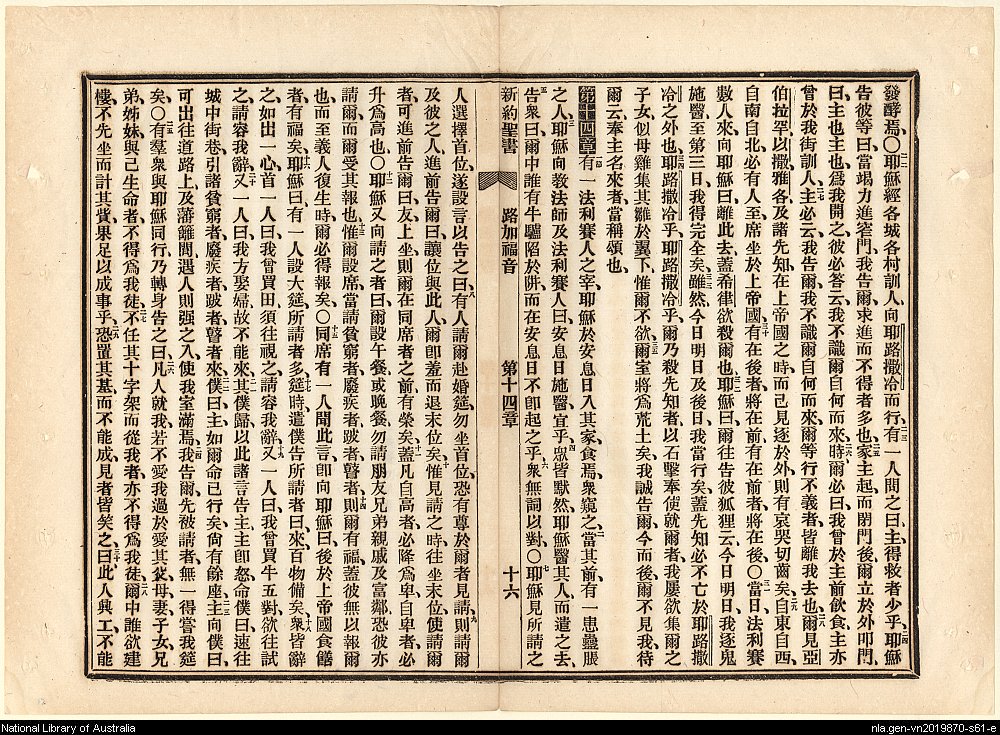 發酵焉○耶穌經各城各村訓人向耶路撒冷而行有一人問之曰主得救者少乎耶穌
告彼等曰當竭力進窄門我告爾求進而不得者多也家主起而閉門後爾立於外叩門
曰主也主也爲我開之彼必答云我不識爾自何而來時爾必曰我曾於主前飲食主亦
曾於我街訓人主必云我告爾我不識爾自何而來爾等行不義者皆離我去也爾見亞
伯拉罕以撒雅各及諸先知在上帝國之時而己見逐於外則有哀哭切齒矣自東自西
自南自北必有人至席坐於上帝國有在後者將在前有在前者將在後○當日法利賽
數人來向耶穌曰離此去蓋希律欲殺爾也耶穌曰爾往告彼狐狸云今日明日我逐鬼
施醫至第三日我得完全矣雖然今日明日及後日我當行矣蓋先知必不亡於耶路撒
冷之外也耶路撒冷乎耶路撒冷乎爾乃殺先知者以石擊奉使就爾者我屢欲集爾之
子女似母雞集其雛於翼下惟爾不欲爾室將爲荒土矣我誠告爾今而後爾不見我待
爾云奉主名來者當稱頌也
第十四章有一法利賽人之宰耶穌於安息日入其家食焉衆窺之當其前有一患蠱脹
之人耶穌向教法師及法利賽人曰安息日施醫宜乎衆皆默然耶穌醫其人而遣之去
告衆曰爾中誰有牛驢陷於阱而在安息日不卽起之乎衆無詞以對○耶穌見所請之
新約聖書 路加福音 第十四章 十六
人選擇首位遂設言以告之曰有人請爾赴婚筵勿坐首位恐有尊於爾者見請則請爾
及彼之人進前告爾曰讓位與此人爾卽羞而退末位矣惟見請之時往坐末位使請爾
者可進前告爾曰友上坐則爾在同席者之前有榮矣蓋凡自高者必降爲卑自卑者必
升爲高也○耶穌又向請之者曰爾設午餐或晚餐勿請朋友兄弟親戚及富鄰恐彼亦
請爾而爾受其報也惟爾設席當請貧窮者廢疾者跛者瞽者則爾有福蓋彼無以報爾
也而至義人復生時爾必得報矣○同席有一人聞此言卽向耶穌曰後於上帝國食餚
者有福矣耶穌曰有一人設大筵所請者多筵時遣僕告所請者曰來百物備矣衆皆辭
之如出一心首一人曰我曾買田須往視之請容我辭又一人曰我曾買牛五對欲往試
之請容我辭又一人曰我方娶婦故不能來其僕歸以此諸言告主主卽怒命僕曰速往
城中街巷引諸貧窮者廢疾者跛者瞽者來僕曰主如爾命已行矣尙有餘座主向僕曰
可出往道路上及藩籬間遇人則强之入使我室滿焉我告爾先被請者無一得嘗我筵
矣○有羣衆與耶穌同行乃轉身告之曰凡人就我若不愛我過於愛其父母妻子女兄
弟姊妹與己生命者不得爲我徒不任其十字架而從我者亦不得爲我徒爾中誰欲建
樓不先坐而計其貲果足以成事乎恐置其基而不能成見者皆笑之曰此人興工不能
National Library of Australia
nla.gen-vn2019870-s61-e